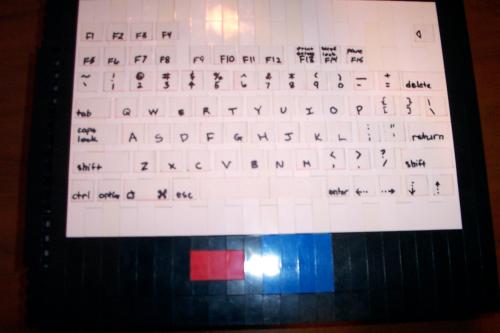 F1 F2 F3 F4
F5 F6 F7 F8 F9 F10 F11 F12 F13 F14 F15
~ ! @ # $ % ^ & * ( ) _ +
` 1 2 3 4 5 6 7 8 9 0 - = delete
tab Q W E R T Y U I O P { } |
[ ] \
caps lock A S D F G H J K L : " return
; '
shift Z X C V B N M < > ? shift
, . /
ctrl option ⌘ esc enter ← → ↓ ↑